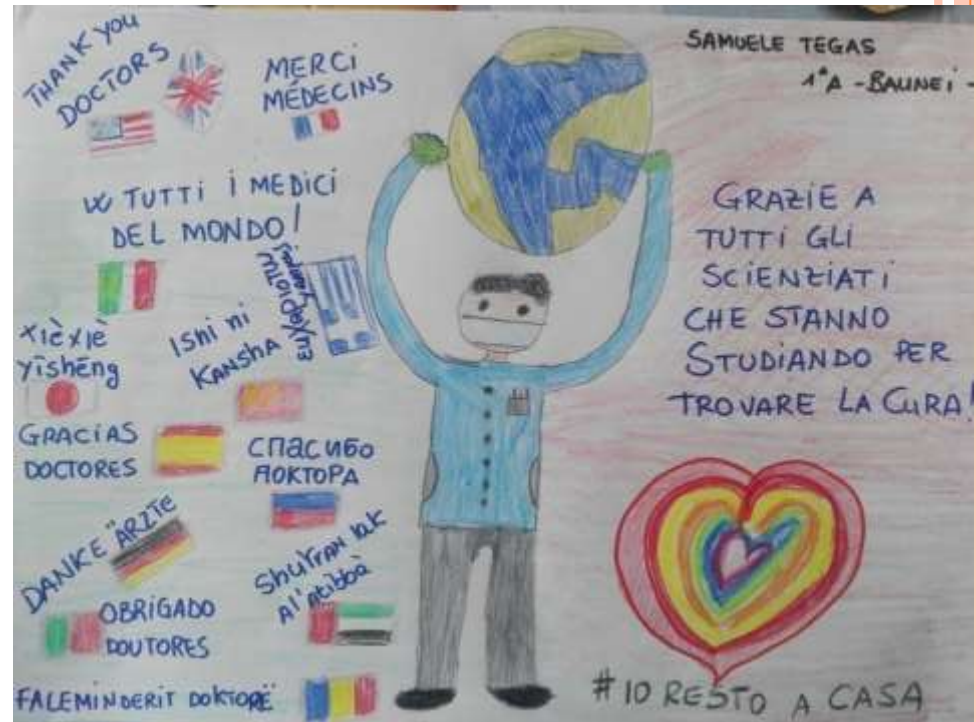 THANK YOU
DOCTORS
MERCi
MÉDECINS
W TUTTi i MEDiCi
DEL MONDO!
Ευχαριστώ
xièxiè
yīshēng
Ishi ni
KANSHA
GRACiAS
DOCTORES
СПАСИБО
ДОКТОРА
DANKE ÄRZTE
Shutran lak
Al'atibbà
OBRiGADO
DOUTORES
FALEMiNDERiT DOKTORË
SAMUELE TEGAS
1^A - BAUNEi -
GRAZiE A
TUTTi GLi
SCiENZiATi
CHE STANNO
STUDiANDO PER
TROVARE LA CURA!
# IO RESTO A CASA